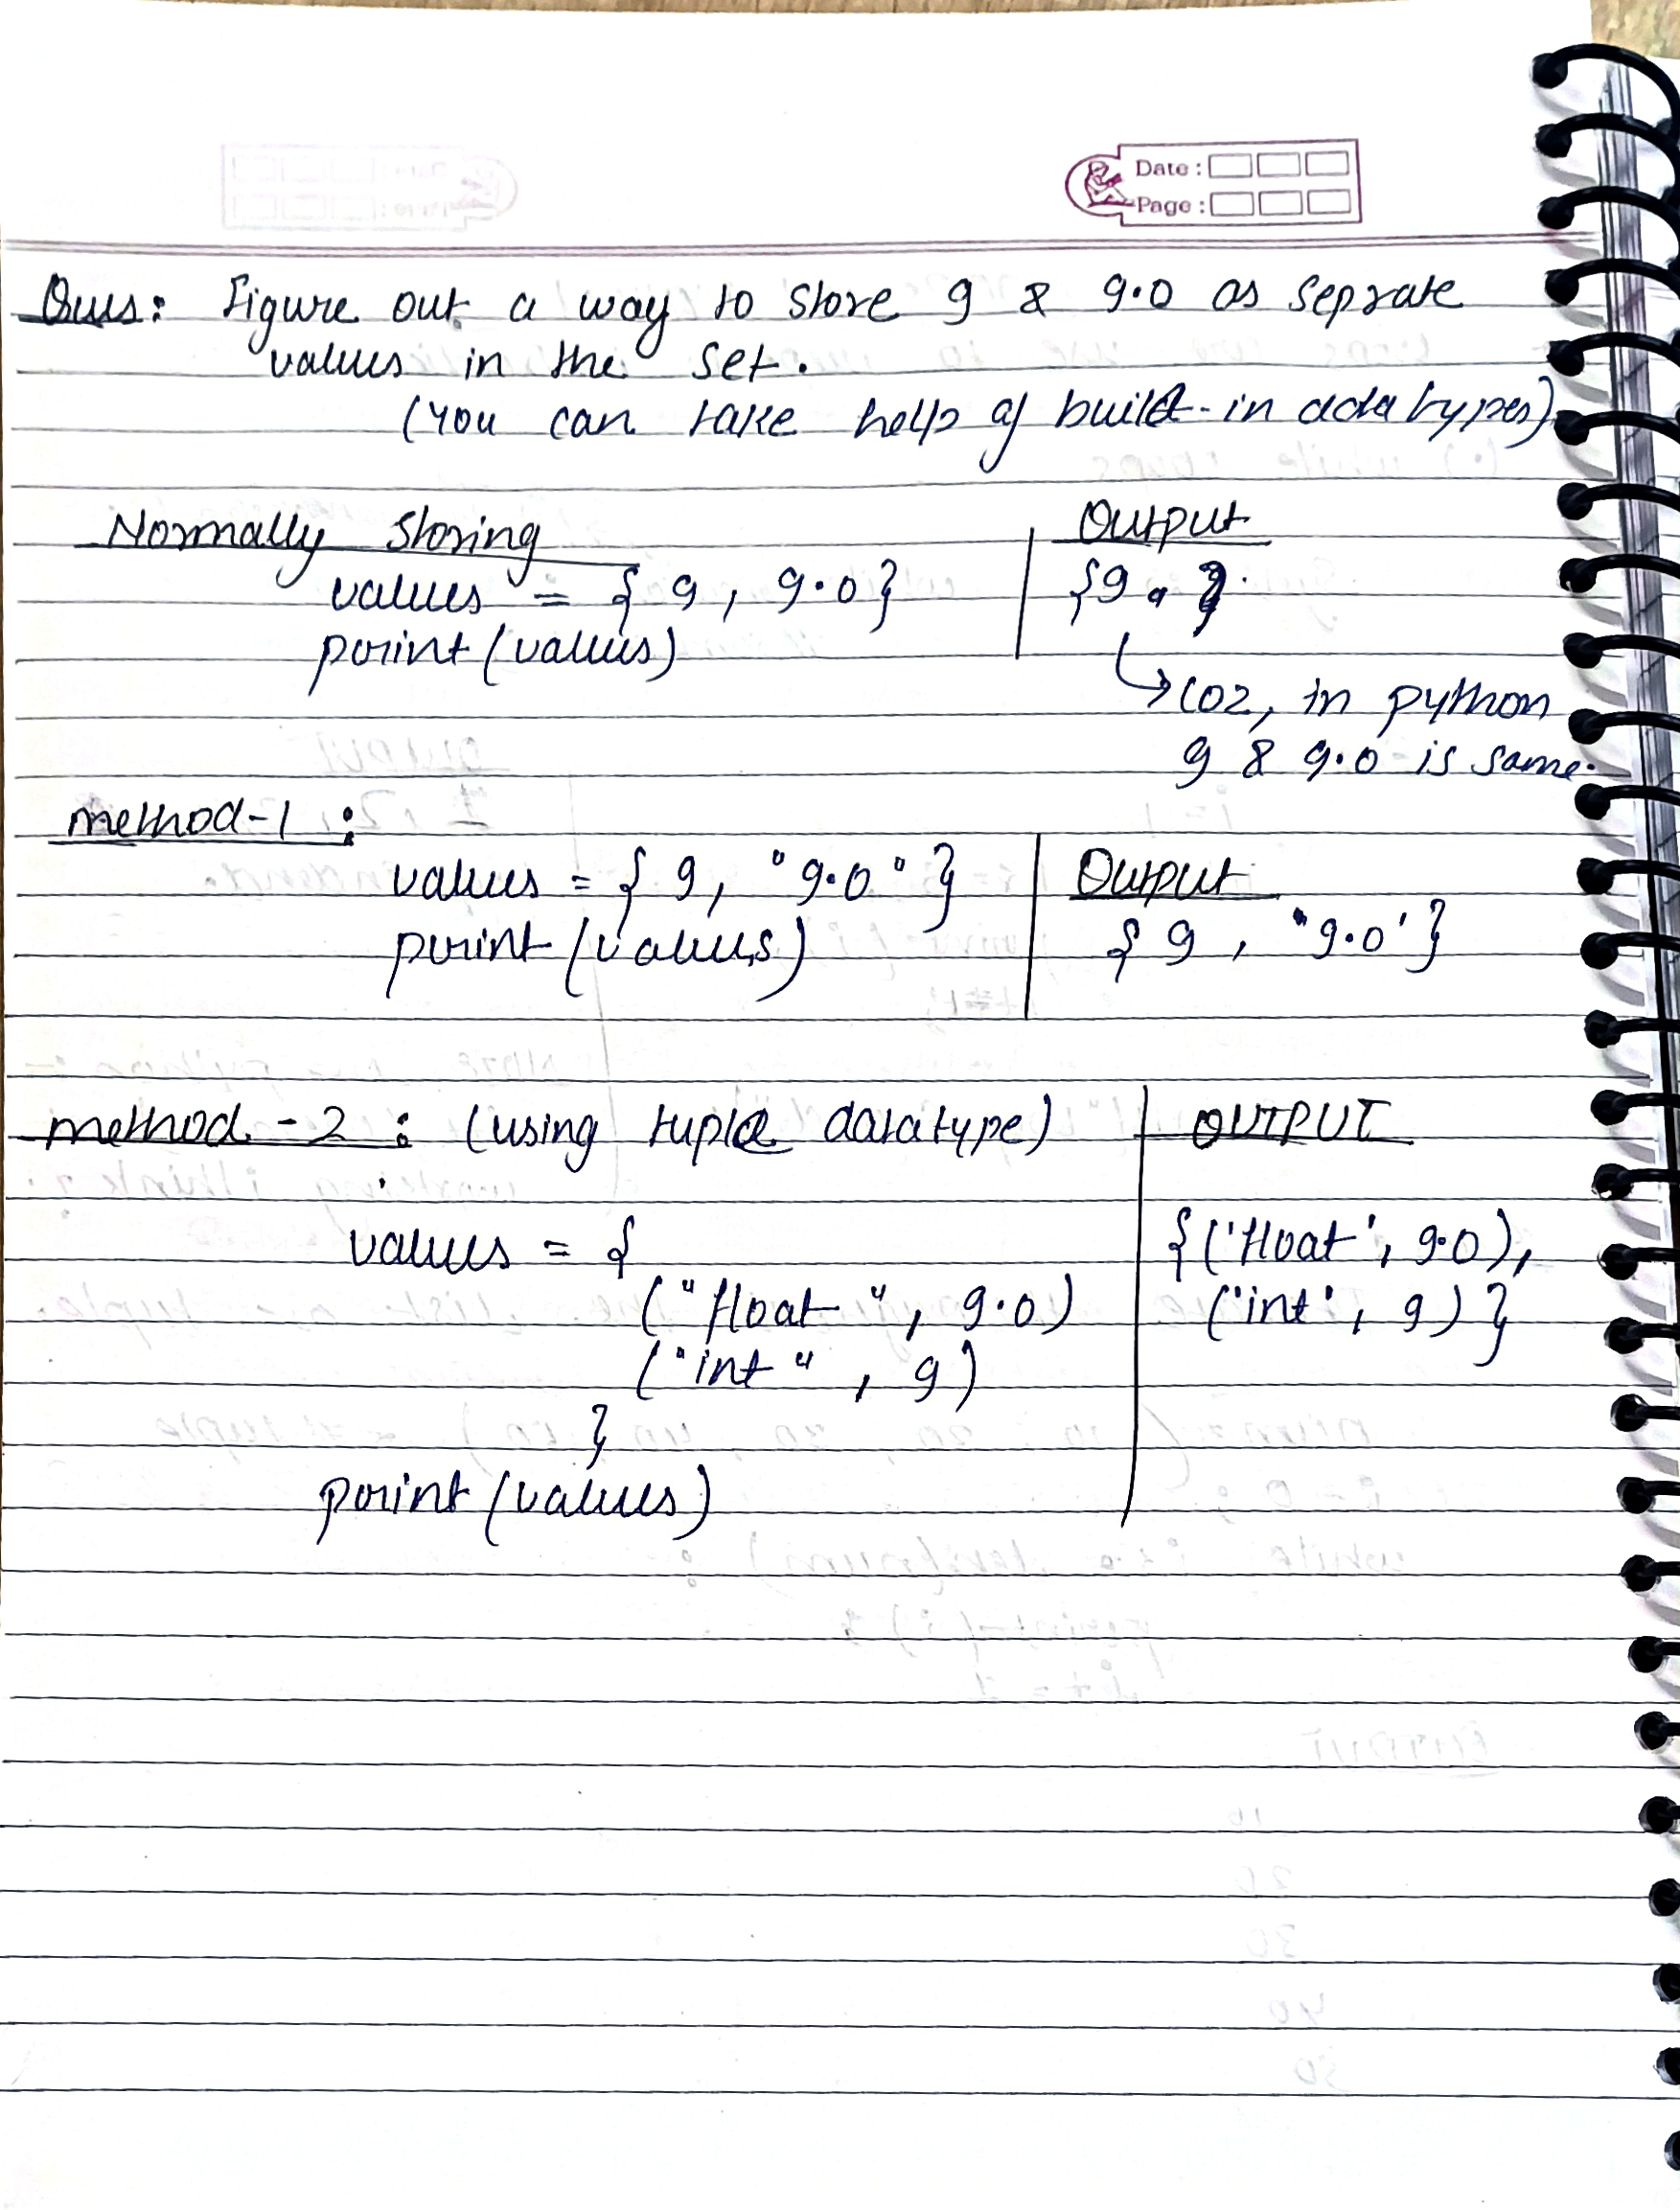 Date :
Page :
Ques: Figure out a way to store 9 & 9.0 as seprate
values in the set.
(You can take help of build-in data types)
Normally Storing
values = { 9, 9.0}
print (values)
Output
{9 }
coz, in python
9 & 9.0 is same.
method-1 :
values = { 9, "9.0" }
print (values)
Output
{ 9 , '9.0' }
method - 2 : (using tuple datatype)
values = {
("float", 9.0)
("int", 9)
}
print (values)
OUTPUT
{('float', 9.0),
('int', 9) }